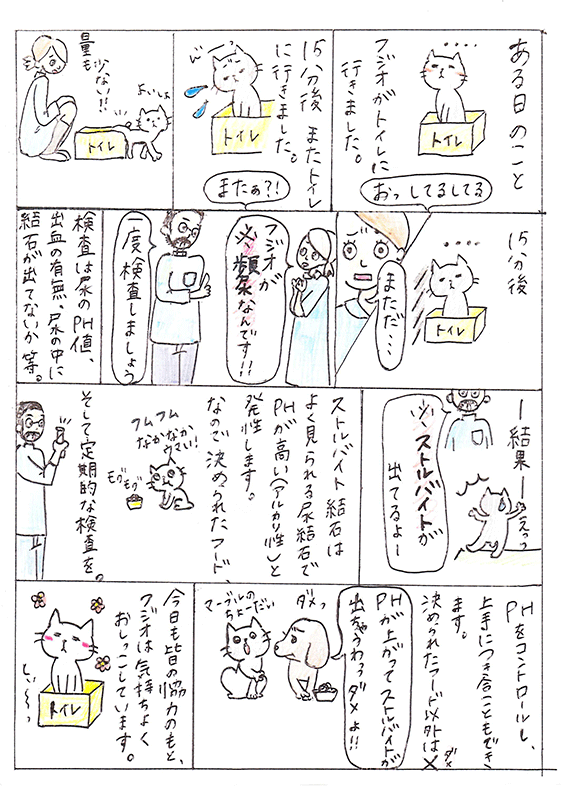 ある日のこと
フジオがトイレに
行きました。
おっしてるしてる
トイレ
15分後 またトイレ
に行きました。
またぁ?!
トイレ
量も
少ない!!
よいしょ
トイレ
15分後
トイレ
まただ・・・
フジオが
頻尿なんです!!
一度検査しましょう
検査は尿のPH値、
出血の有無、尿の中に
結石が出てないか 等。
ー結果ー
ストルバイトが
出てるよー
えっっ
ストルバイト結石は
よく見られる尿結石で
PHが高い(アルカリ性)と
発性します。
なので決められたフード、
フムフム
なかなか
ウマい!!
モグ
モグ
そして定期的な検査を。
PHをコントロールし、
上手につき合こともでき
ます。
決められたフード以外は×
ダメ
PHが上がってストルバイトが
出ちゃうわっ ダメよ!!
ダメっ
マーブルの
ちょーだい
今日も皆の協力のもと、
フジオは気持ちよく
おしっこしています。
トイレ